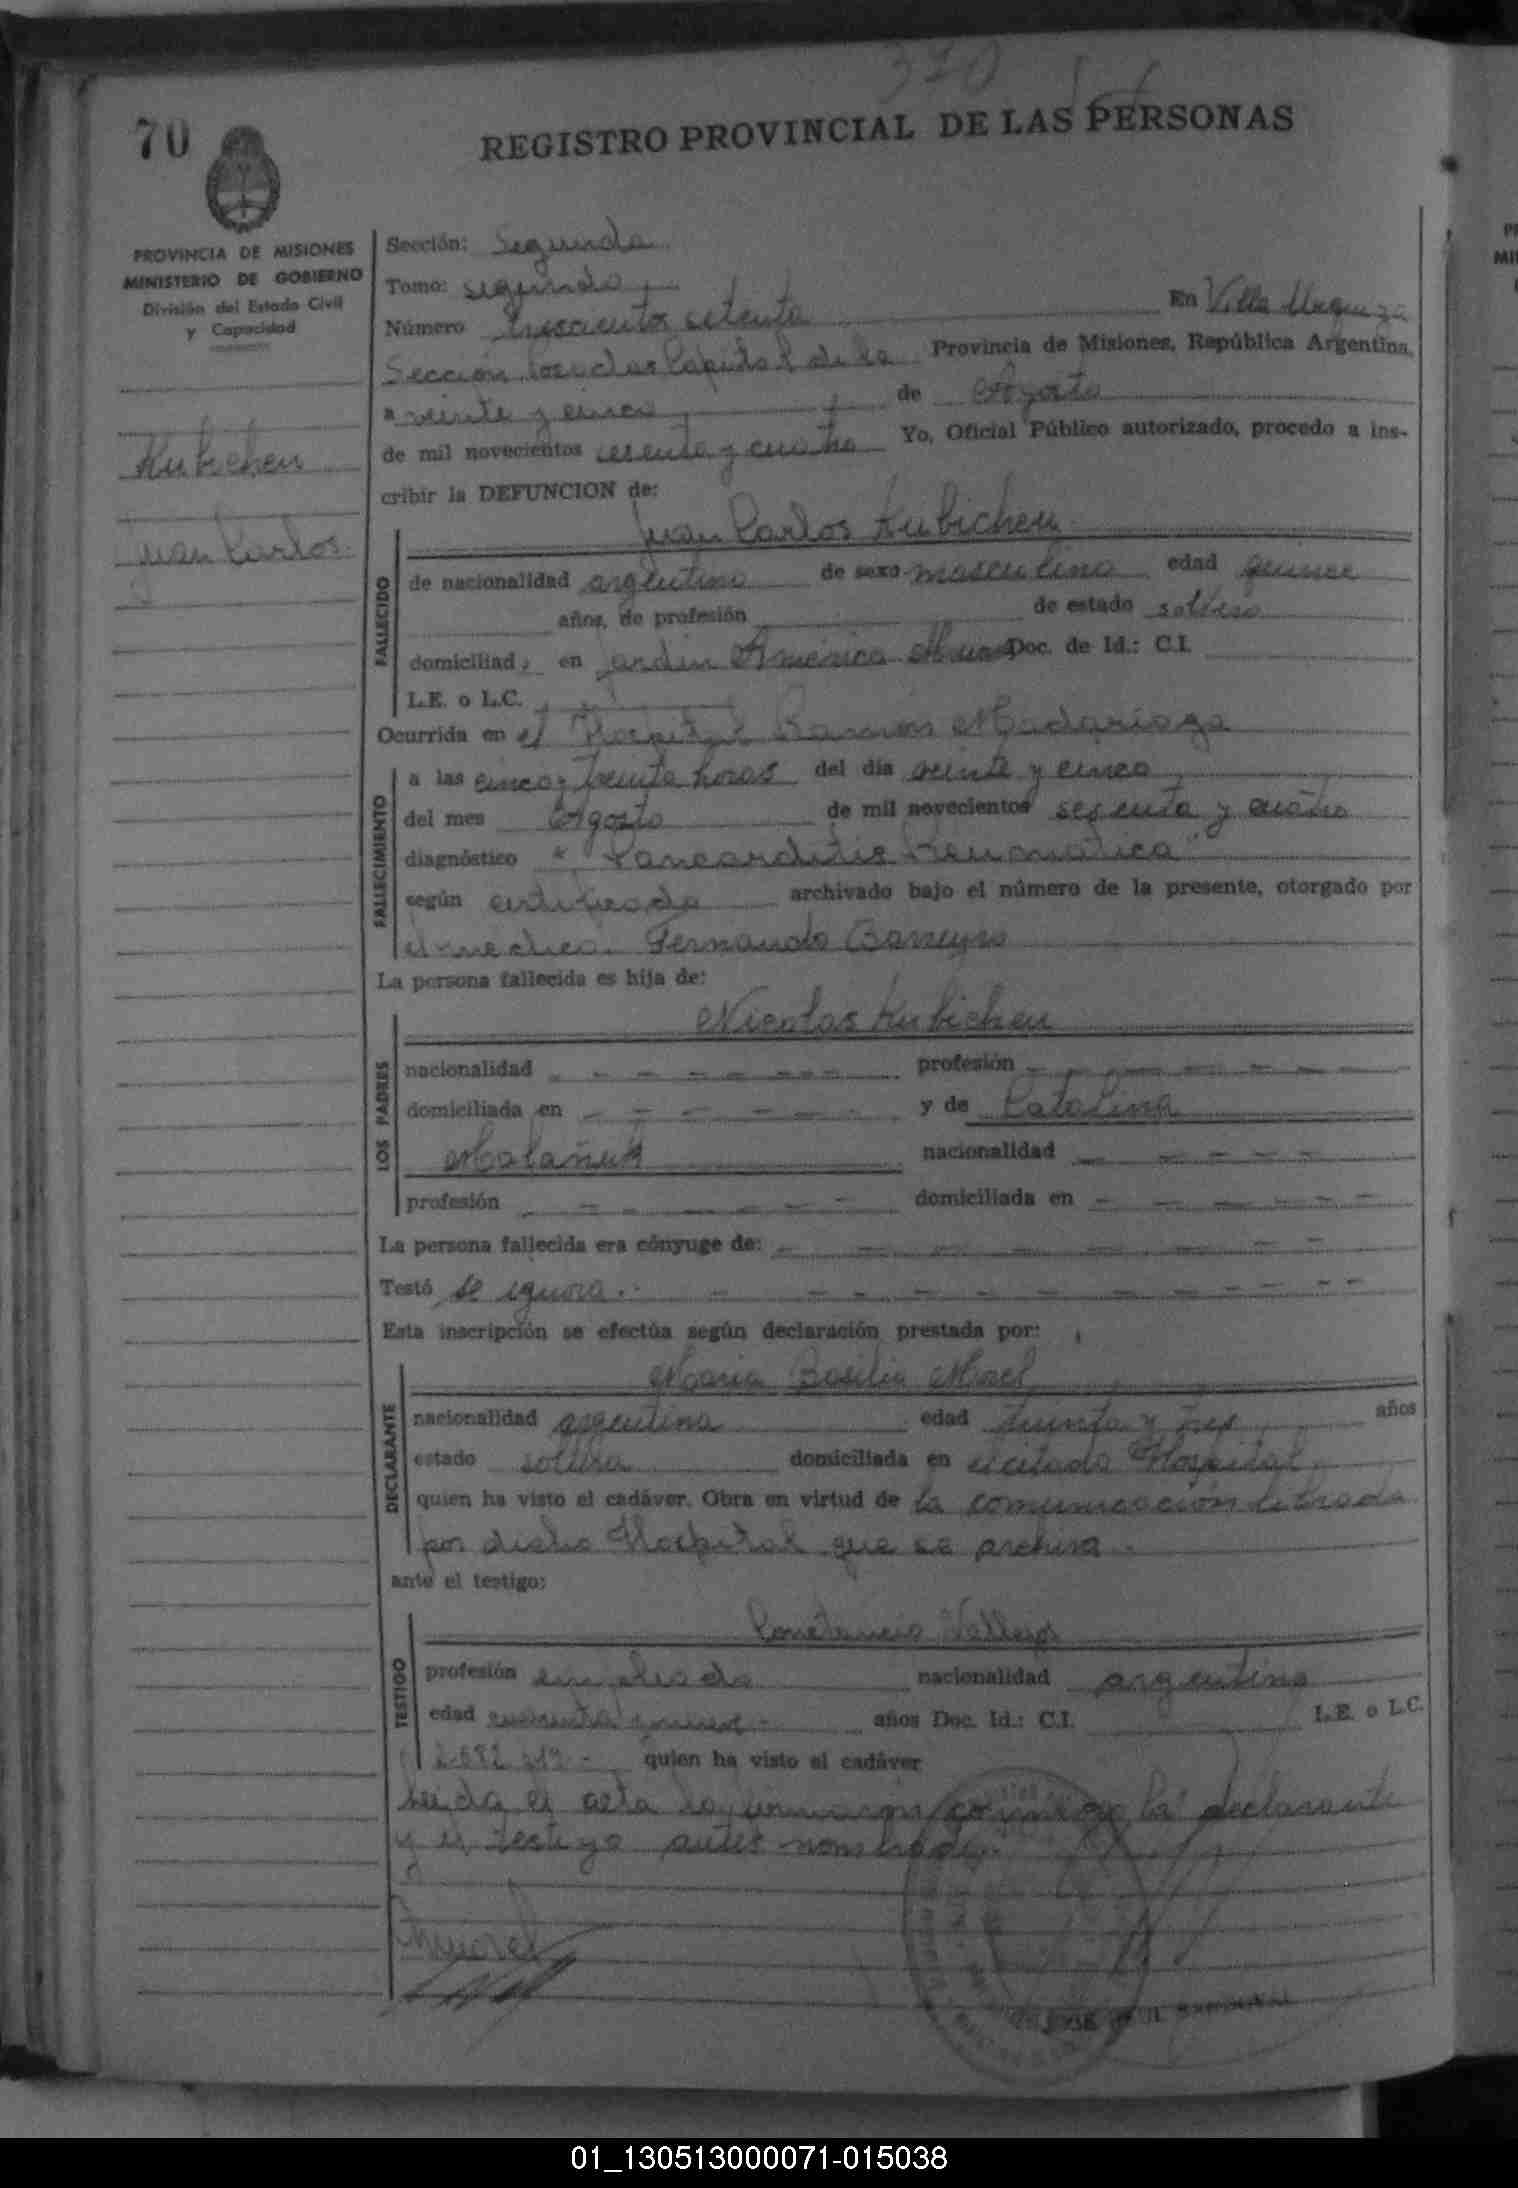 370
70
REGISTRO PROVINCIAL DE LAS PERSONAS
PROVINCIA DE MISIONES
MINISTERIO DE GOBIERNO
División del Estado Civil
y Capacidad
Kubicheu
Juan Carlos
Sección: Segunda
Tomo: segundo
Número trescientos setenta En Villa Urquiza
Sección Posadas Capital de la Provincia de Misiones, República Argentina,
a veinte y cinco de Agosto
de mil novecientos sesenta y cuatro Yo, Oficial Público autorizado, procedo a ins-
cribir la DEFUNCION de:
Juan Carlos Kubicheu
FALLECIDO
de nacionalidad argentina de sexo masculino edad quince
años, de profesión de estado soltero
domiciliad en Jardin America Doc. de Id.: C.I.
L.E. o L.C.
Ocurrida en el Hospital Ramón Madariaga
FALLECIMIENTO
a las cinco y treinta horas del día veinte y cinco
del mes Agosto de mil novecientos sesenta y cuatro
diagnóstico "Pancarditis Reumatica"
según certificado archivado bajo el número de la presente, otorgado por
el medico. Fernando Barreyro
La persona fallecida es hija de:
Nicolas Kubicheu
LOS PADRES
nacionalidad - - - - - - - profesión - - - - - - -
domiciliada en - - - - - y de Catalina
Malañuk nacionalidad - - - - -
profesión - - - - - - domiciliada en - - - - - -
La persona fallecida era cónyuge de: - - - - - - - -
Testó se ignora. - - - - - - - - - -
Esta inscripción se efectúa según declaración prestada por:
Maria Basilia Morel
DECLARANTE
nacionalidad argentina edad treinta y tres años
estado soltera domiciliada en el citado Hospital
quien ha visto el cadáver. Obra en virtud de la comunicación librada
por dicho Hospital que se archiva.
ante el testigo:
Constancio Vallejos
TESTIGO
profesión empleado nacionalidad argentina
edad cuarenta y años Doc. Id.: C.I. L.E. o L.C.
quien ha visto el cadáver
Leida el acta la firmaron conmigo la declarante
y el testigo antes nombrado.
Mmorel
01_130513000071-015038